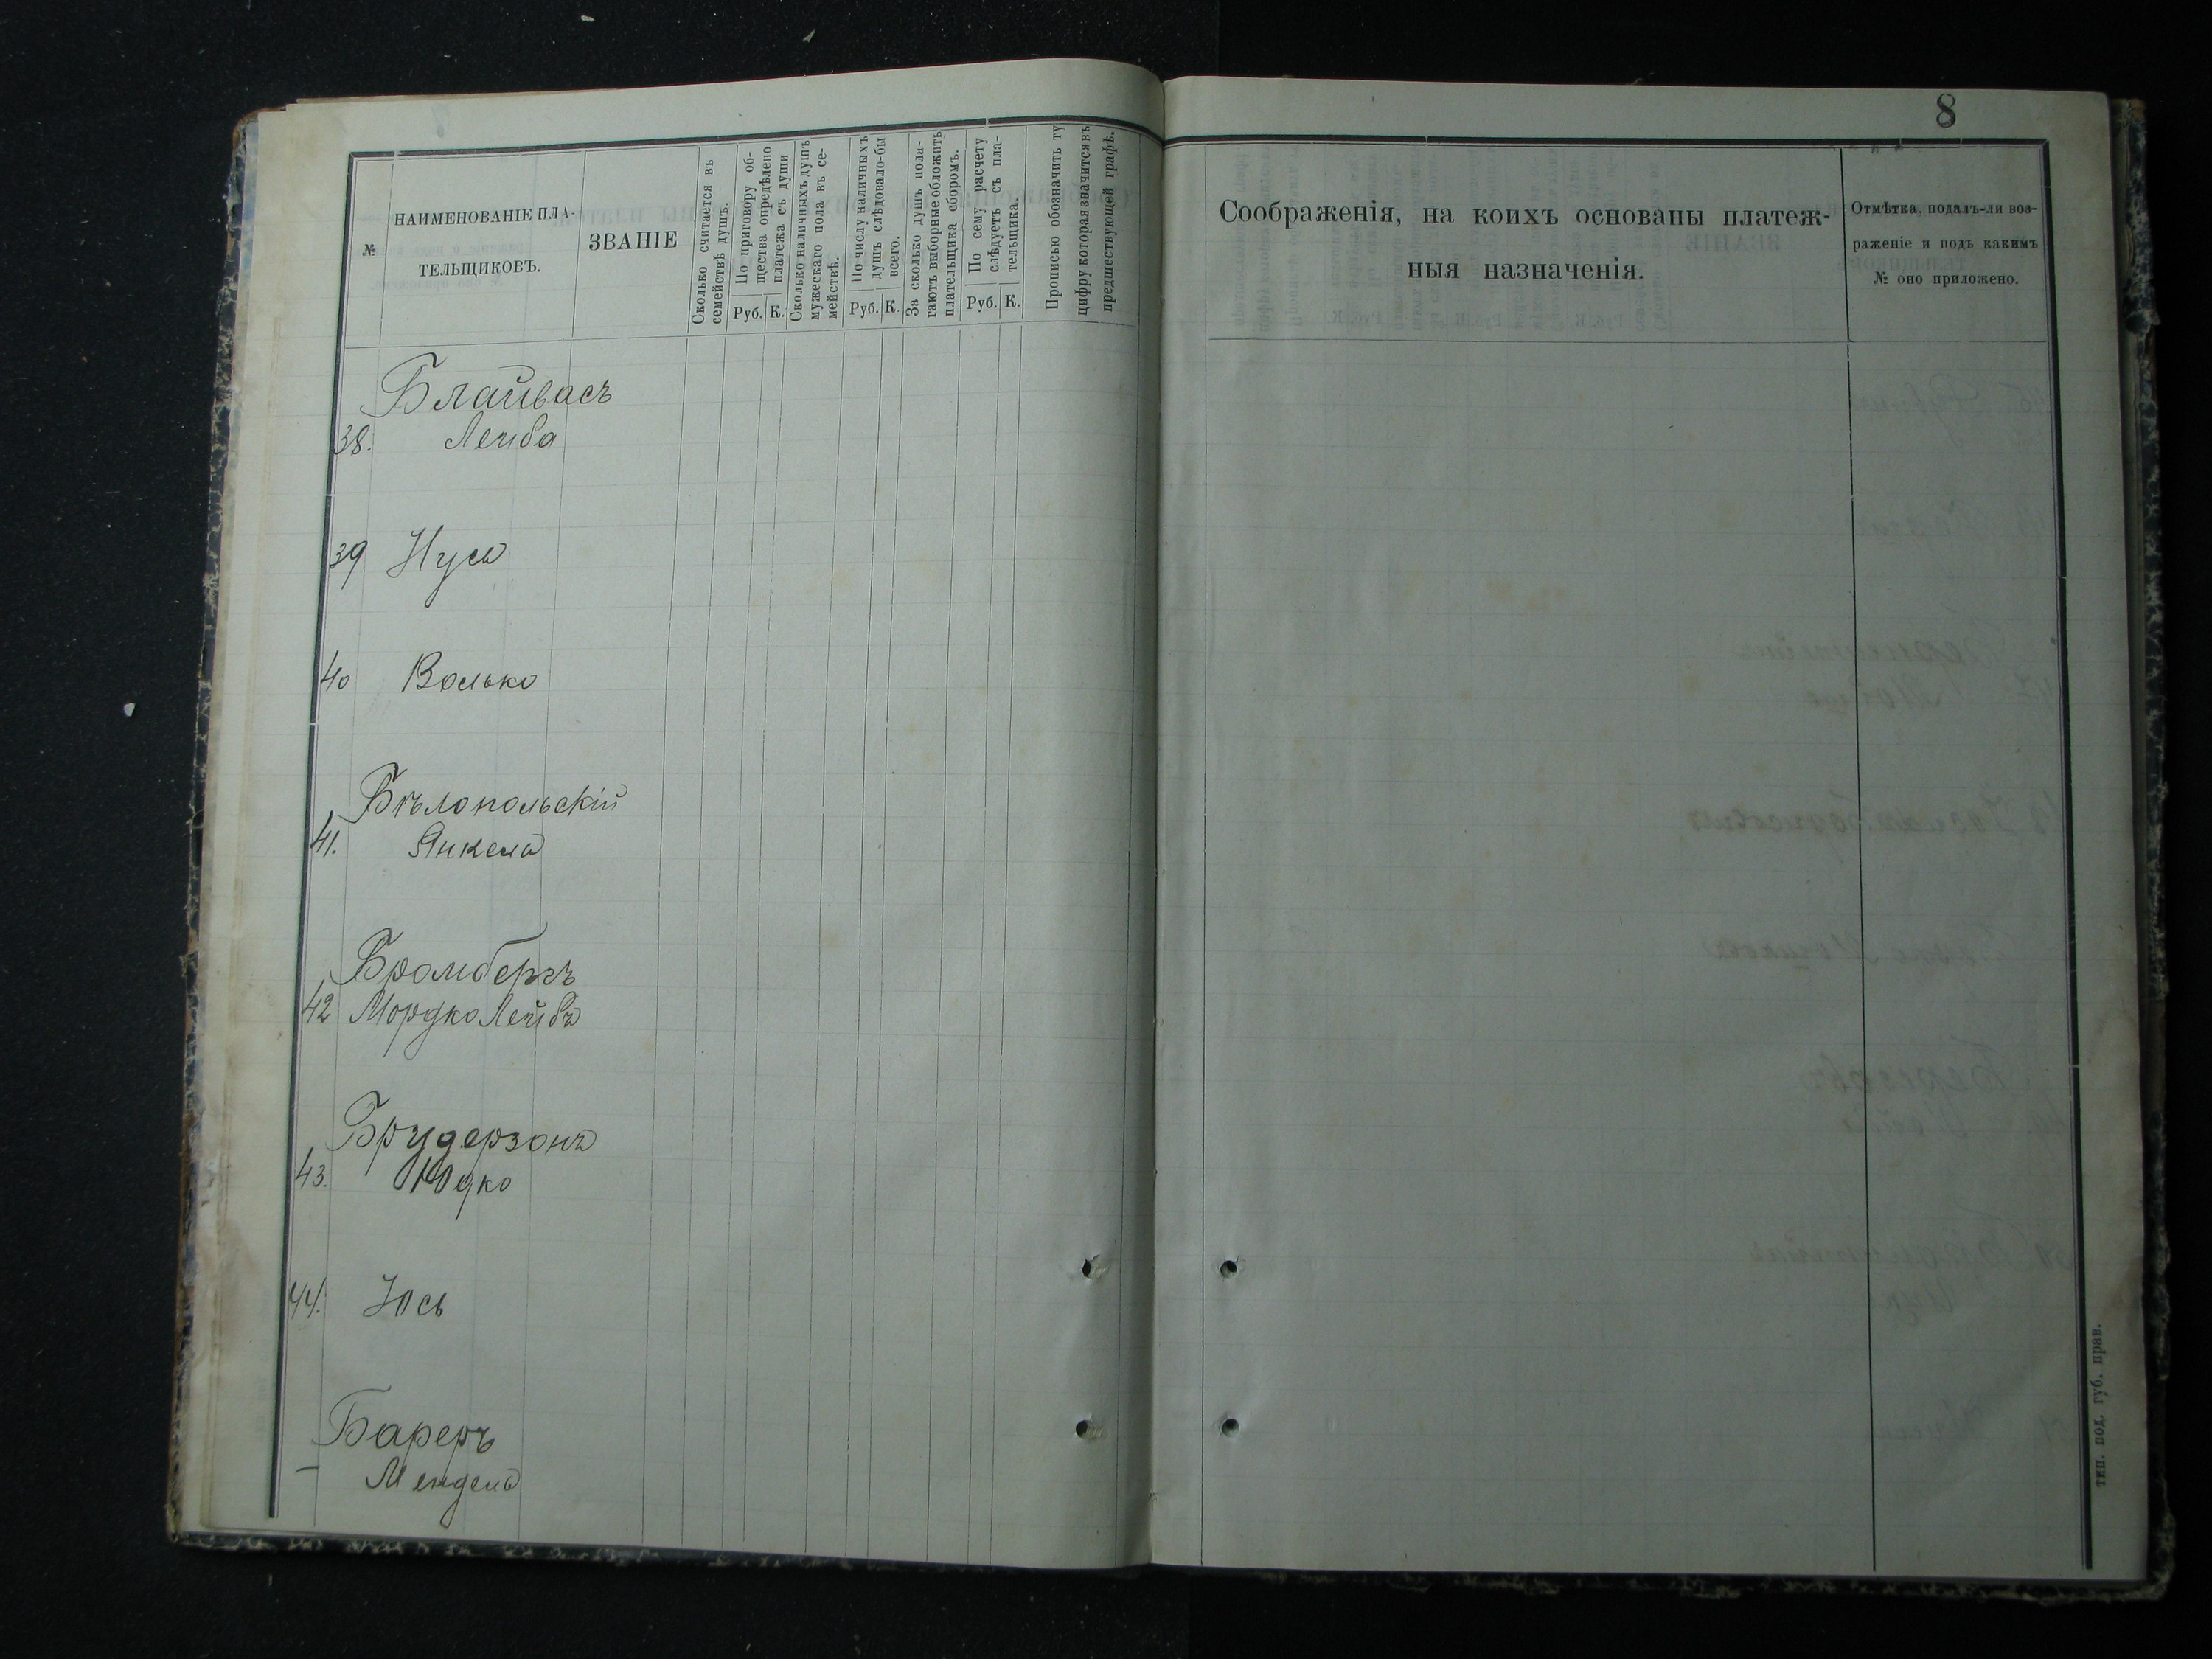 8
№
НАИМЕНОВАНІЕ ПЛА-
ТЕЛЬЩИКОВЪ.
ЗВАНІЕ
Сколько считается въ
семействѣ душъ.
По приговору об-
щества опредѣлено
платежа съ души
Руб. К.
Сколько наличныхъ душъ
мужескаго пола въ се-
мействѣ.
По числу наличныхъ
душъ слѣдовало-бы
всего.
Руб. К.
За сколько душъ пола-
гаютъ выборные обложить
плательщика сборомъ.
По сему расчету
слѣдуетъ съ пла-
тельщика.
Руб. К.
Прописью обозначить ту
цифру которая значится въ
предшествующей графѣ.
Соображенія, на коихъ основаны платеж-
ныя назначенія.
Отмѣтка, подалъ-ли воз-
раженіе и подъ какимъ
№ оно приложено.
Блайвасъ
38. Лейба
39 Нусъ
40 Волько
Бѣлопольскій
41. Янкель
Бромбергъ
42 Мордко Лейбъ
Брудерзонъ
43. Юдко
44. Іось
Бареръ
— Мендель
тип. под. губ. прав.